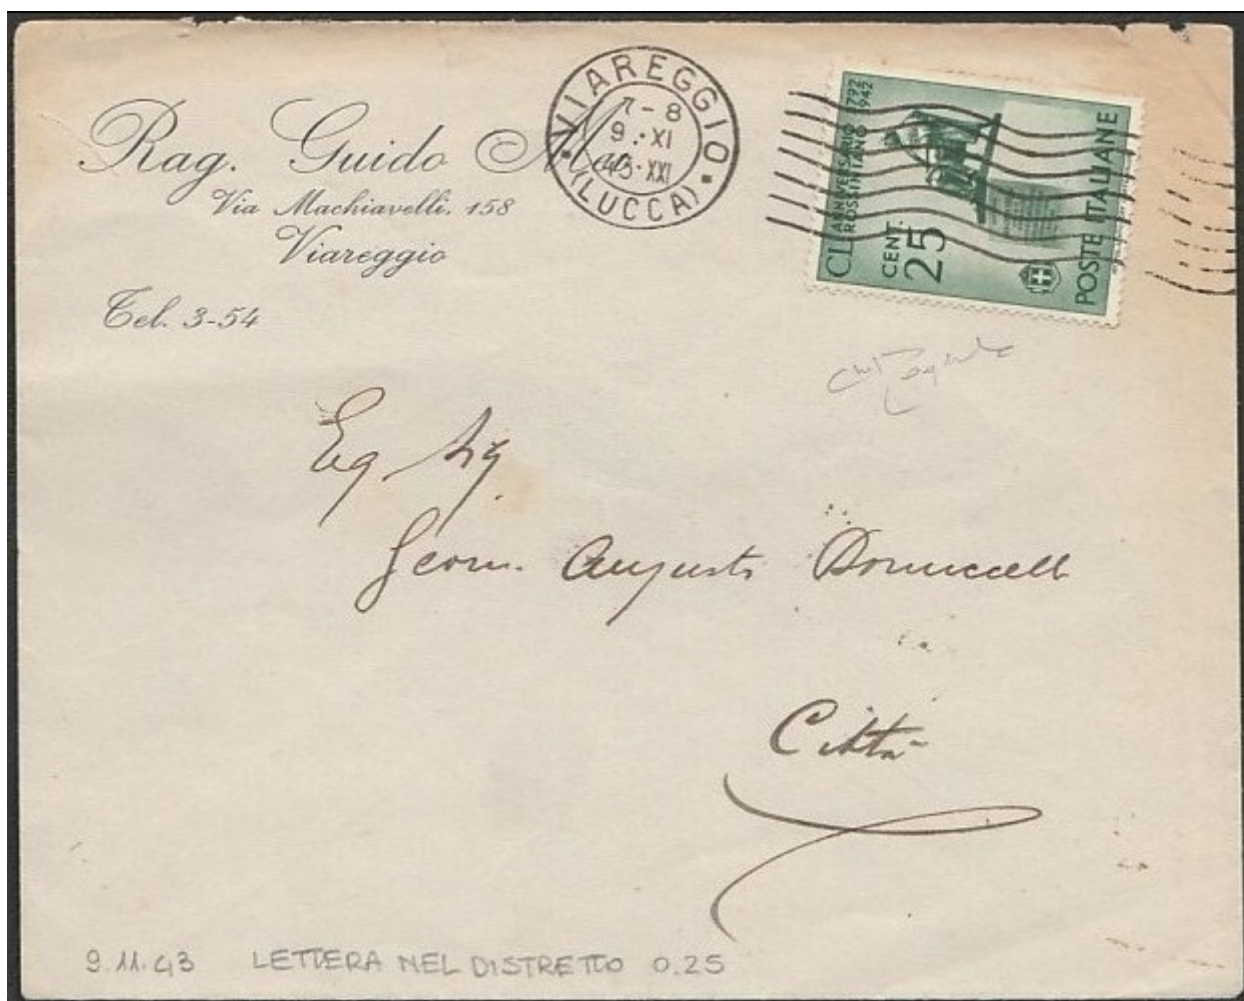 Rag. Guido
Via Machiavelli, 158
Viareggio
Tel. 3-54
VIAREGGIO
7-8
9.XI
43.XXI
(LUCCA)
CL ANNIVERSARIO ROSSINIANO 1792 1942
CENT. 25
POSTE ITALIANE
Eg Sig
Geom. Augusto
Città
9.11.43 LETTERA NEL DISTRETTO 0.25